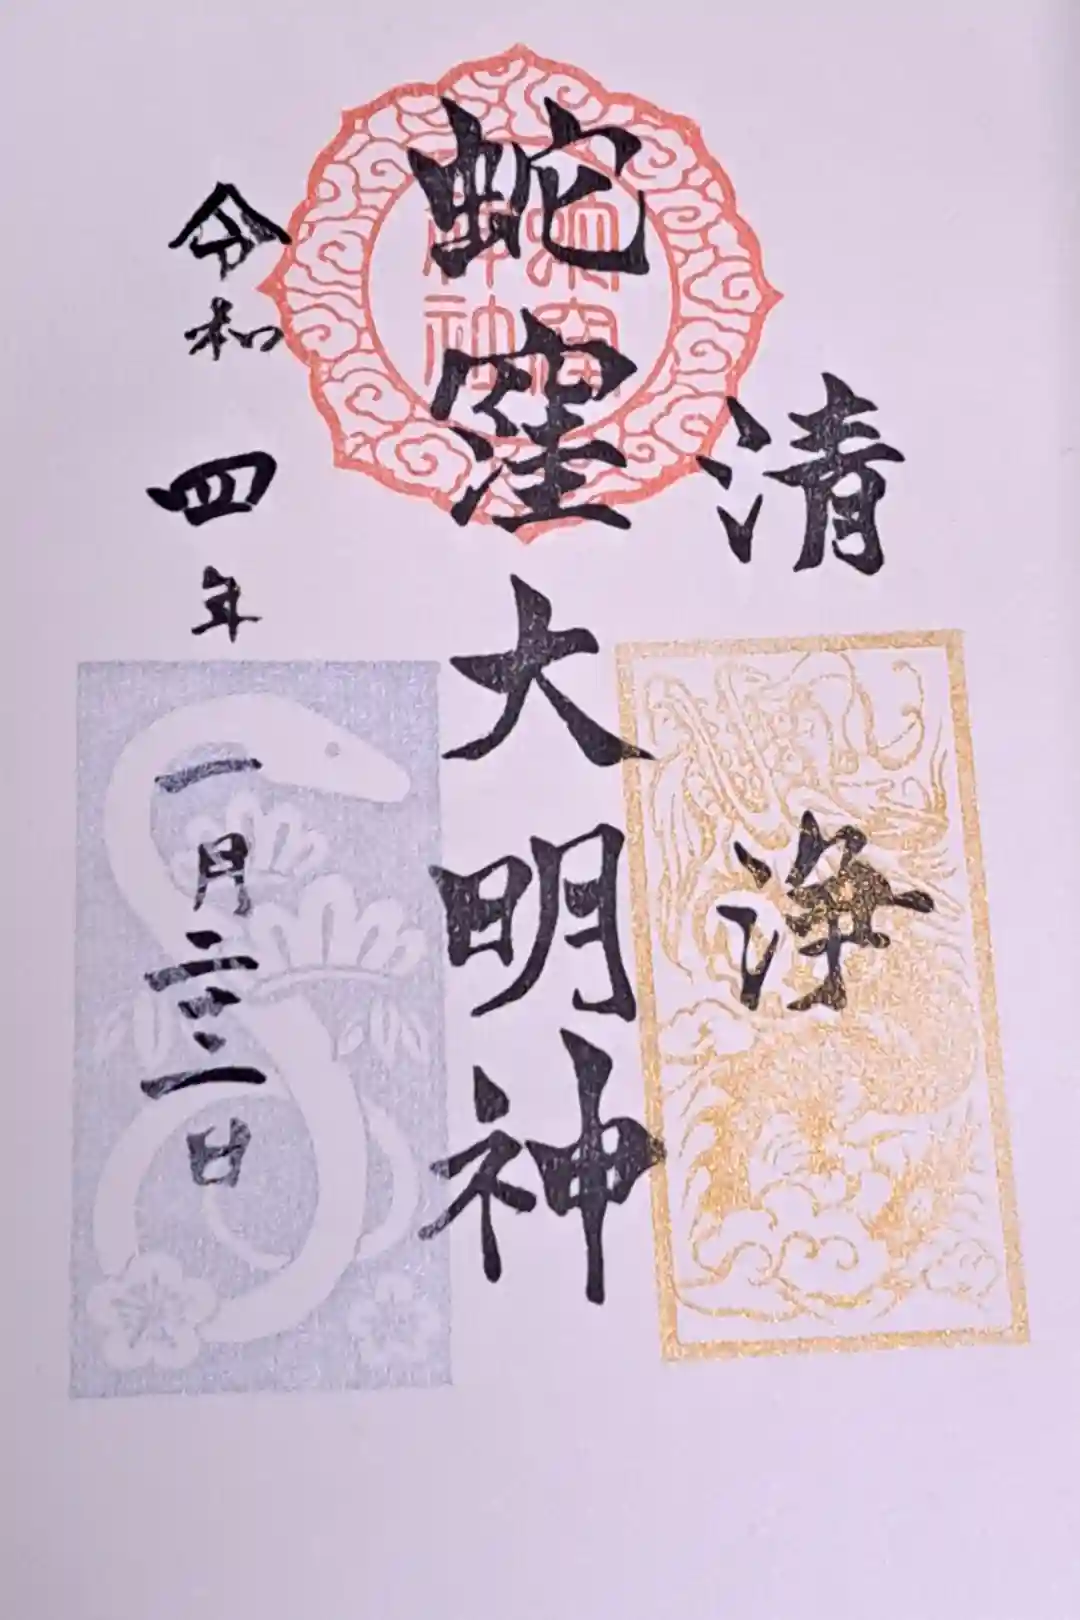 清浄
蛇窪大明神
令和四年一月二三日
蛇窪
神社